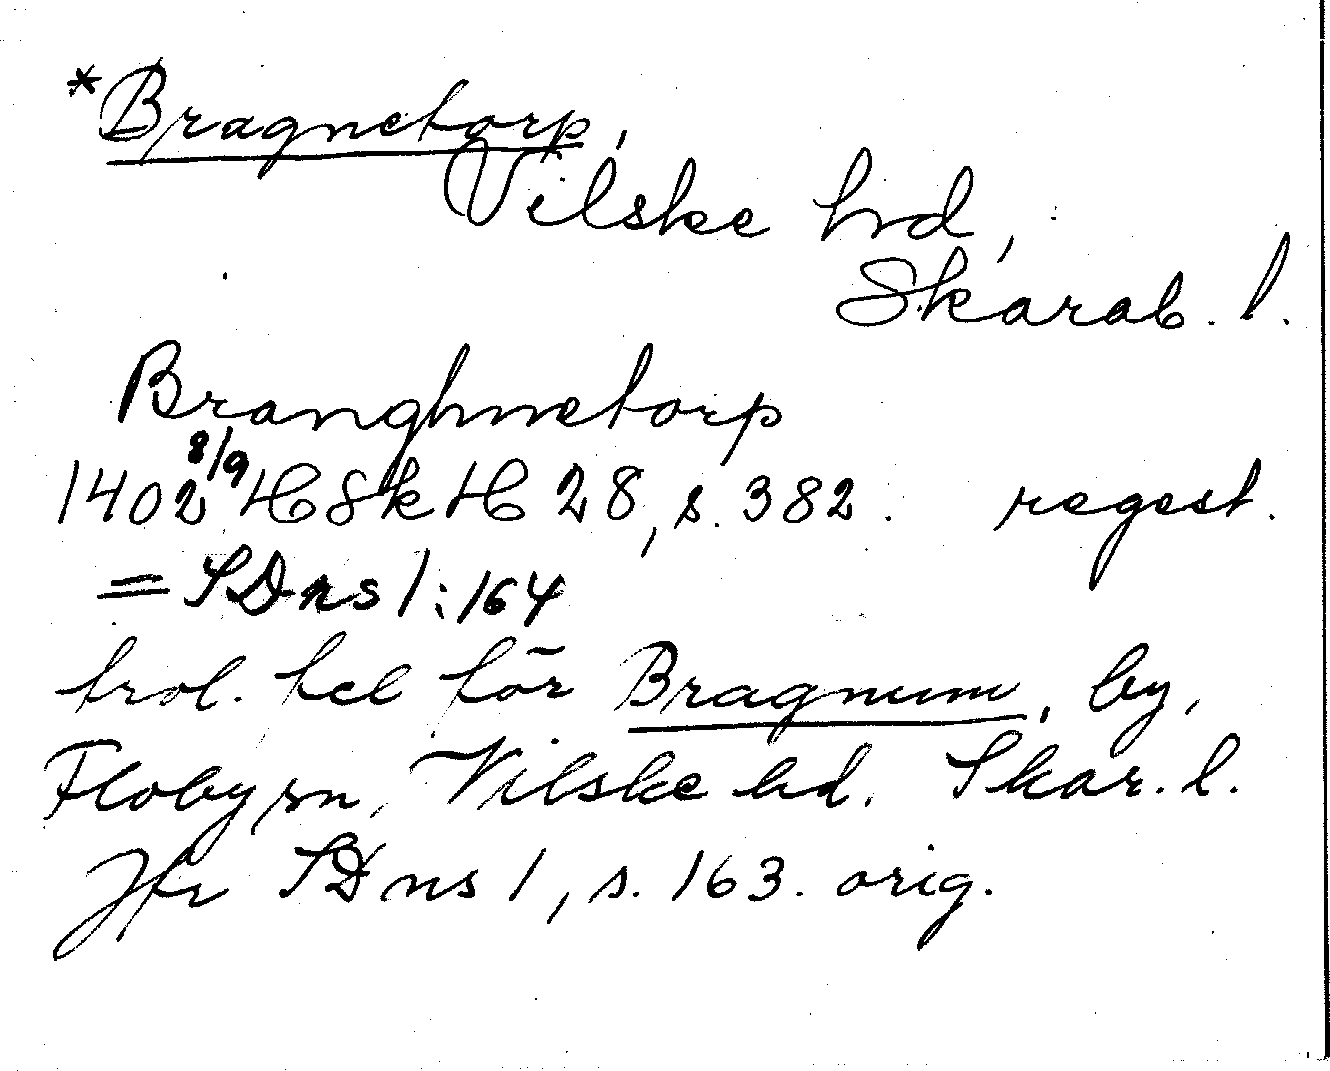 *Bragnetorp,
Vilske hd,
Skarab. l.
Branghnetorp
1402 8/9 HSkH 28, s. 382. regest.
= SDns 1:164
trol. fel för Bragnum, by,
Floby sn, Vilske hd. Skar. l.
Jfr SD ns 1, s. 163. orig.